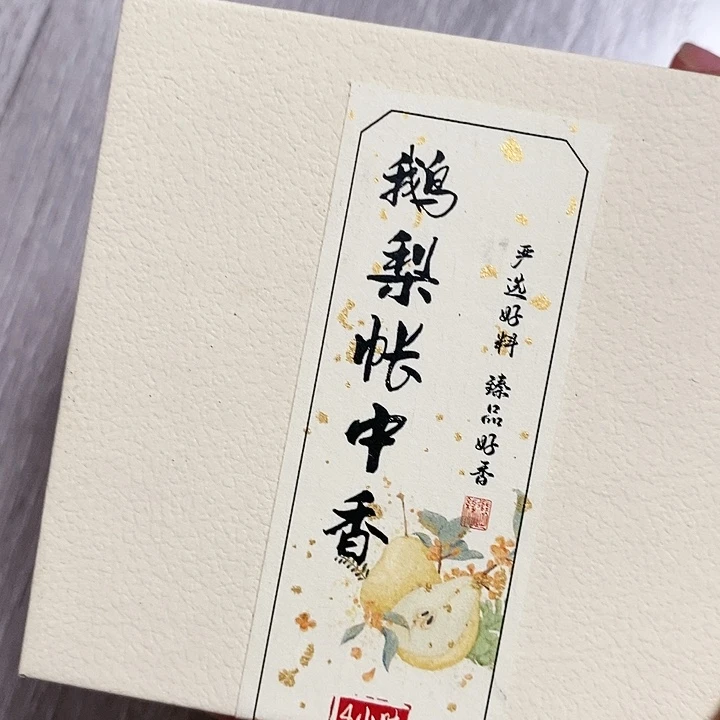 严选好料 臻品好香
鹅梨帐中香
4小时